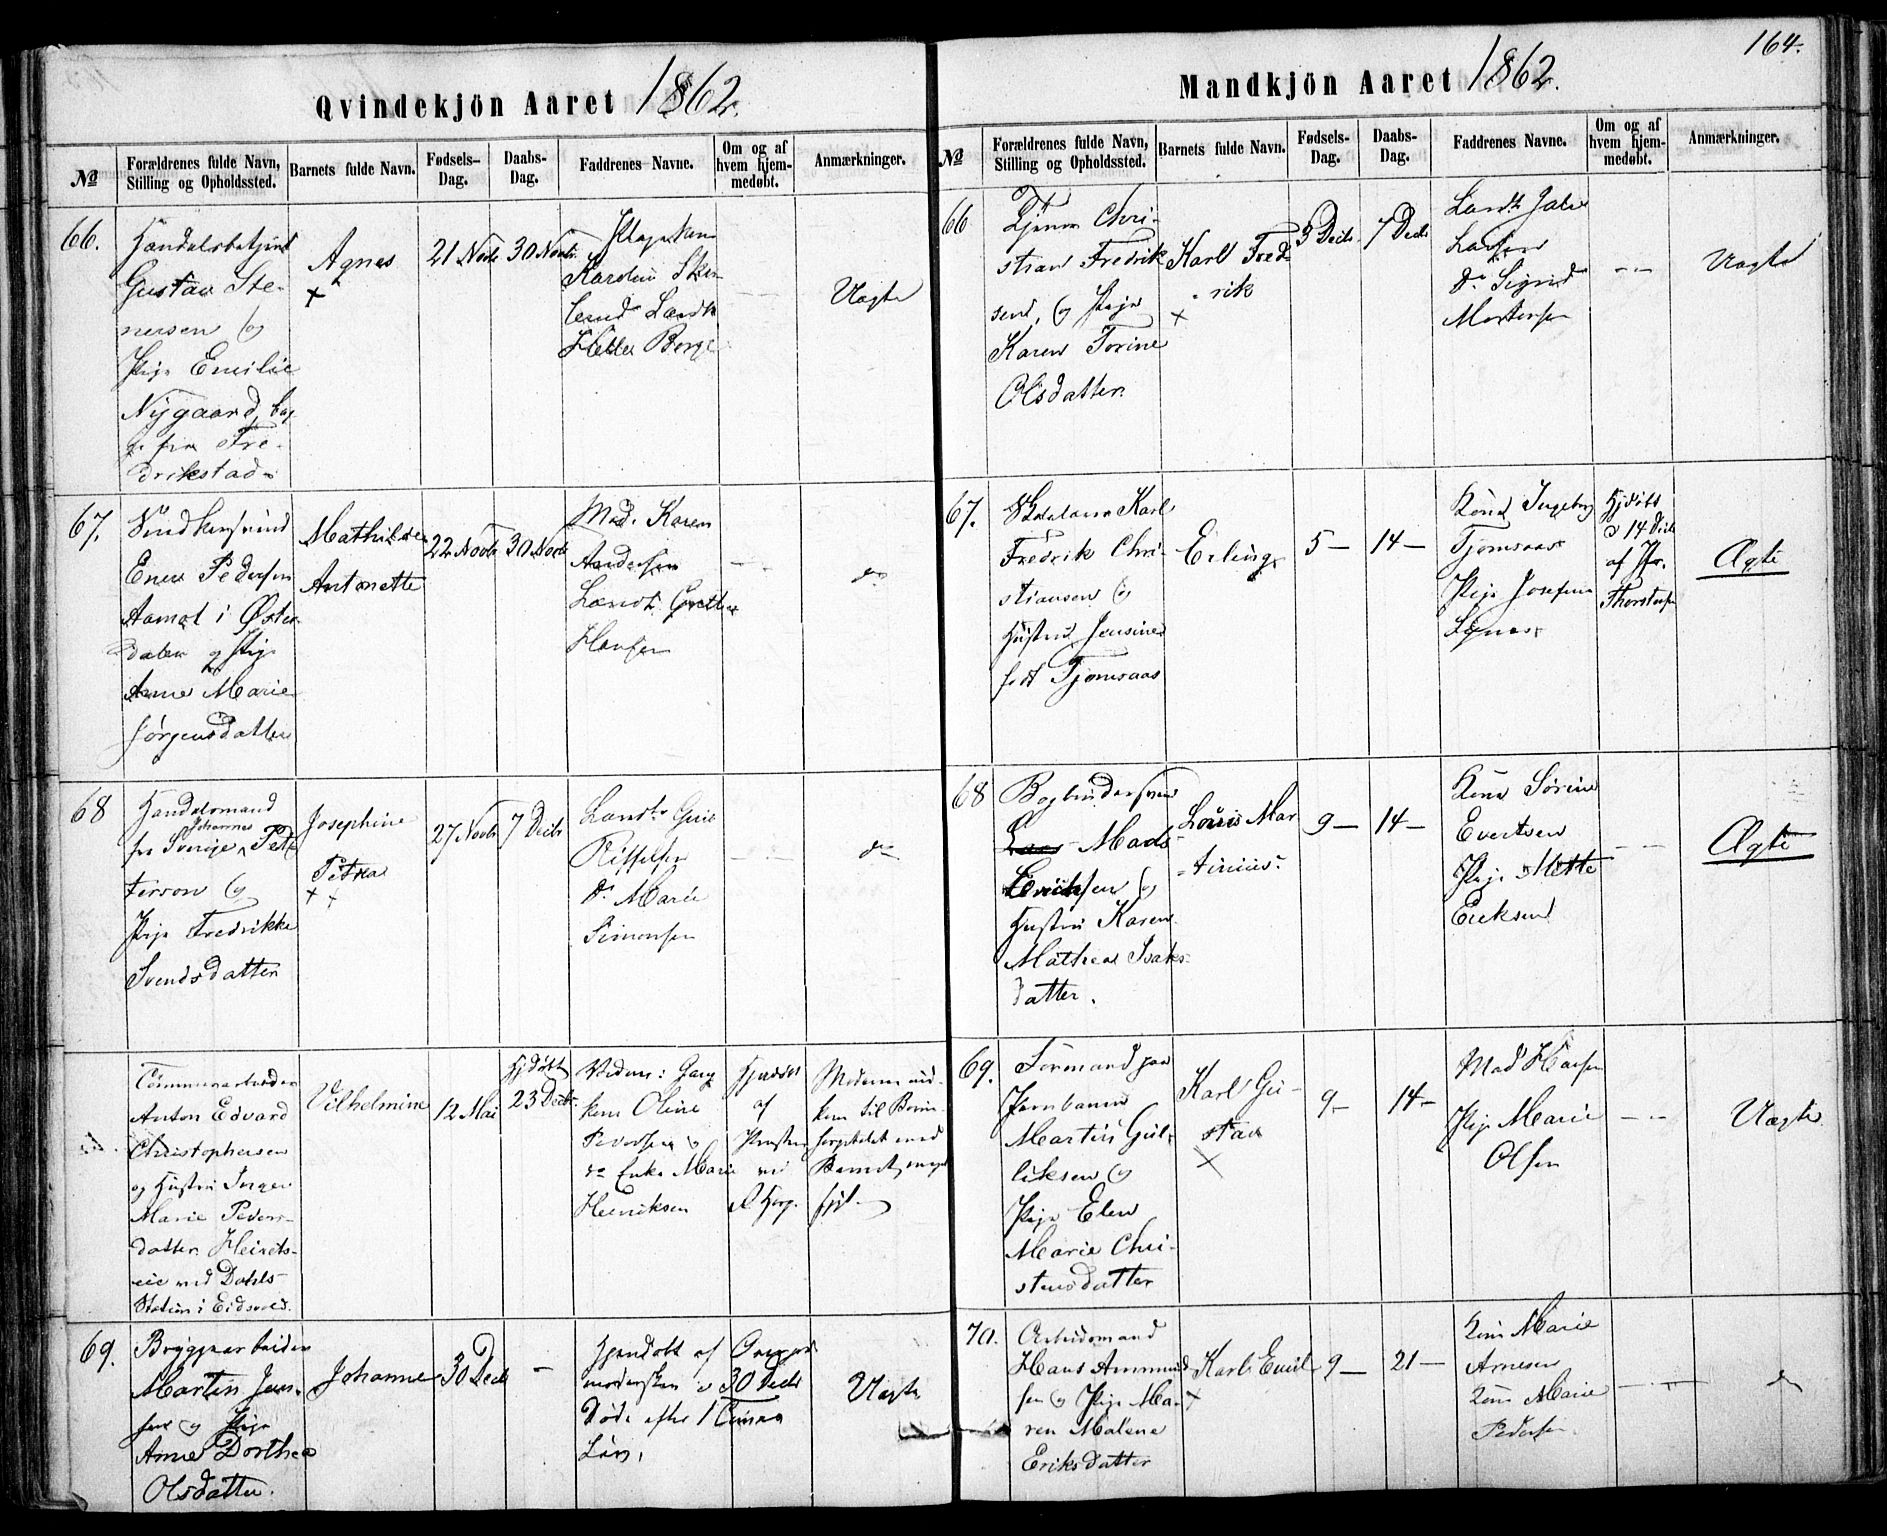 164.
Qvindekjön Aaret 1862.
№
Forældrenes fulde Navn,
Stilling og Opholdssted.
Barnets fulde Navn.
Fødsels-
Dag.
Daabs-
Dag.
Faddrenes Navne.
Om og af
hvem hjem-
medøbt.
Anmærkninger.
66.
Handelsbetjent
Gustav Ste-
nersen og
Pige Emilie
Nygaard, beg-
ge fra Fre-
drikstad
Agnes
21 Novb
30 Novb
Karoline
Landh
Berge
Uægte
67.
Snedkersvend
Ener Pedersen
Aamot i Øster
dalen og Pige
Anne Marie
Jørgensdatter
Mathilde
Antonette
22 Novb
30 Novb
Mad. Karen
Andersen
Landh. Grethe
Hansen
do
68
Handelsmand
fra Sverige Johannes Pet
terson og
Pige Fredrikke
Svendsdatter
Josephine
Petra
27 Novb
7 Decb
Landh
do Marie
Simonsen
do
Tømmerarbeider
Anton Edvard
Christophersen
og Hustru Inger
Marie Peders-
datter
eie ved Dahls-
Station i Eidsvold.
Vilhelmine
12 Mai
Hjdøbt
23 Decb
Oline
Pedersen og
do Enke Marie
Henriksen
Hjemdøbt
af
Præsten
ved
Moderen
til
med
Barnet
69.
Bryggearbeider
Martin Jen-
sen og Pige
Anne Dorthea
Olsdatter.
Johanne
30 Decb
Hjemdøbt af
modersken d 30 Decb
Død efter 1 Times
Liv.
Uægte
Mandkjön Aaret 1862.
№
Forældrenes fulde Navn,
Stilling og Opholdssted.
Barnets fulde Navn.
Fødsels-
Dag.
Daabs-
Dag.
Faddrenes Navne.
Om og af
hvem hjem-
medøbt.
Anmærkninger.
66
Tjener Chri-
stian Fredrik
sen, og Pige
Karen Torine
Olsdatter.
Karl Fred
rik
3 Decb
7 Decb
Landh
Larsen
do Sigrid
Mortensen
Uægte
67.
Karl
Fredrik Chri-
stiansen og
Hustru Jensine
født Tjomsaas
Erling
5 —
14 —
Kone Ingeborg
Tjomsaas
Pige Josefine
Hjdøbt
d 14 Decb
af Jfr.
Thorstensen
Ægte
68
Bogbindersvend
Mads
Erichsen og
Hustru Karen
Mathea Isaks-
datter.
Louis Mar
tinius
9 —
14 —
Kone Sørine
Evertsen
Pige Mette
Ericksen
Ægte
69.
Formand paa
Jernbanen
Martin Gul-
liksen og
Pige Elen
Marie Chri-
stensdatter
Karl Gu-
stav
9 —
14 —
Mad Hansen
Pige Marie
Olsen
Uægte
70.
Arbeidsmand
Hans Ammund
sen og Pige Ma-
ren Malene
Eriksdatter
Karl Emil
9 —
21 —
Kone Marie
Arnesen
Kone Marie
Pedersen
do